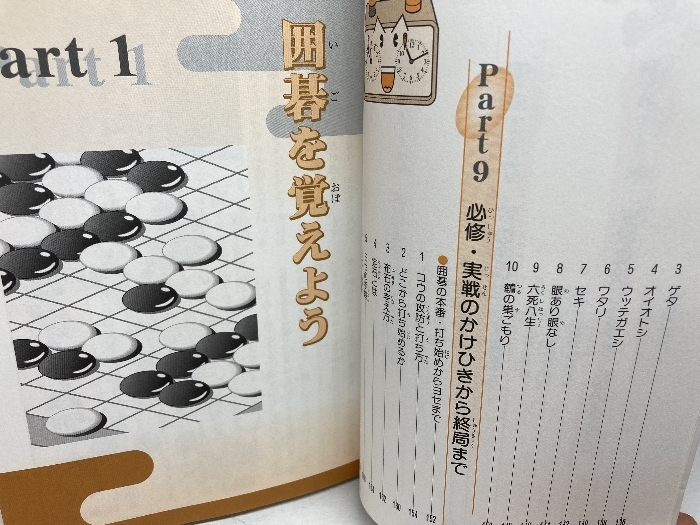 Part 1
囲碁を覚えよう
いご
おぼ
3 ゲタ
4 オイオトシ
5 ウッテガエシ
6 ワタリ
7 セキ
8 眼あり眼なし
9 六死八生
10 鶴の巣ごもり
Part 9
必修・実戦のかけひきから終局まで
●囲碁の本番・打ち始めからヨセまで
1 コウの攻防と打ち方
2 どこから打ち始めるか
3 布石の考え方
4 定石とは
152
154
160